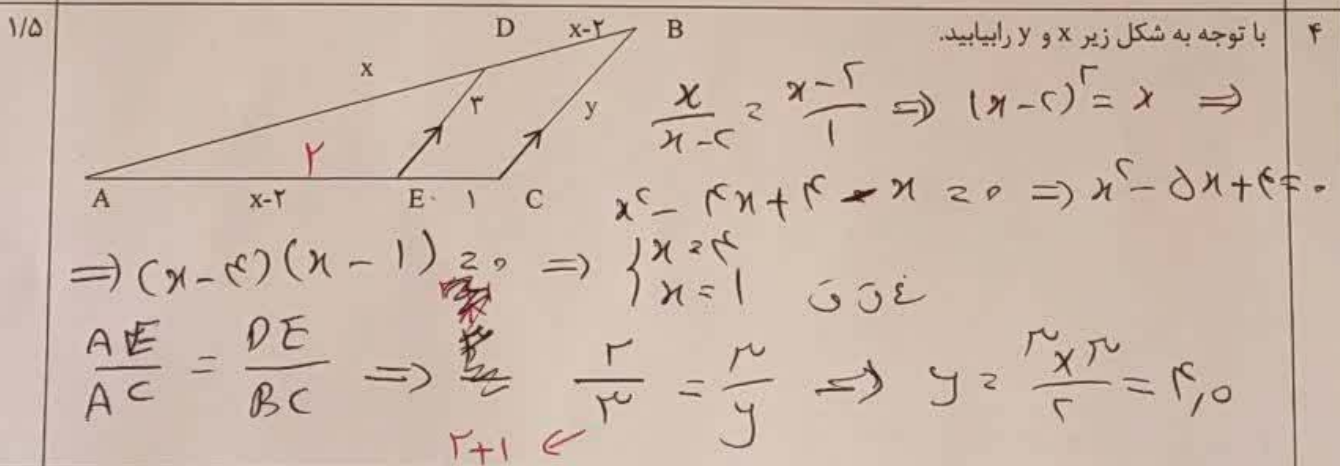 ۱/۵
۴ با توجه به شکل زیر x و y رابیابید.
D x-۲ B
x ۳ y
۲
A x-۲ E ۱ C
x/(x-۲) = (x-۲)/۱ ⇒ (x-۲)^۲ = x ⇒
x^۲ - ۴x + ۴ - x = ۰ ⇒ x^۲ - ۵x + ۴ = ۰
⇒ (x-۴)(x-۱) = ۰ ⇒ { x = ۴
x = ۱ غ ق ق
AE/AC = DE/BC ⇒ ۲/۳ = ۳/y ⇒ y = (۳×۳)/۲ = ۴,۵
۲+۱ ←